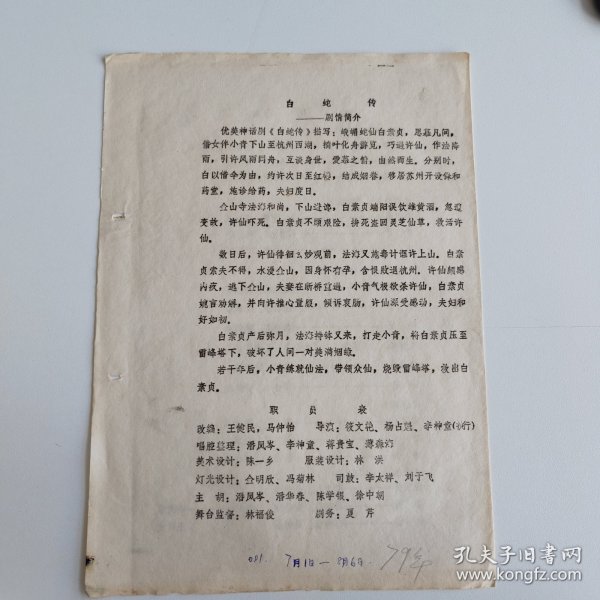 白蛇传
——剧情简介
优美神话剧《白蛇传》描写：峨嵋蛇仙白素贞，思慕凡间，
偕女伴小青下山至杭州西湖，摘叶化舟游览，巧遇许仙，作法降
雨，引许风雨同舟，互谈身世，爱慕之情，由然而生。分别时，
白以借伞为由，约许次日至红楼，结成姻眷，移居苏州开设保和
药堂，施诊给药，夫妇度日。
仝山寺法海和尚，下山进谗，白素贞端阳误饮雄黄酒，忽起
变故，许仙吓死。白素贞不顾艰险，拚死盗回灵芝仙草，救活许
仙。
数日后，许仙徘徊玄妙观前，法海又施毒计诓许上山。白素
贞索夫不得，水漫仝山，因身怀有孕，含恨败退杭州。许仙
内疚，逃下仝山，夫妻在断桥重逢，小青气极欲杀许仙，白素贞
婉言劝解，并向许推心置腹，倾诉衷肠，许仙深受感动，夫妇和
好如初。
白素贞产后弥月，法海持钵又来，打走小青，将白素贞压至
雷峰塔下，破坏了人间一对美满姻缘。
若干年后，小青练就仙法，带领众仙，烧毁雷峰塔，救出白
素贞。
职员表
改编：王健民，马仲怡 导演：筱文艳、杨占魁、李神童(执行)
唱腔整理：潘凤岑、李神童、蒋贵宝、
美术设计：陈一乡 服装设计：林洪
灯光设计：仝明欣、冯菊林 司鼓：李太祥、刘于飞
主胡：潘凤岑、潘华春、陈学银、徐中朝
舞台监督：林福俊 剧务：夏芹
7月1日—8月6日 79年
孔夫子旧书网
www.kongfz.com